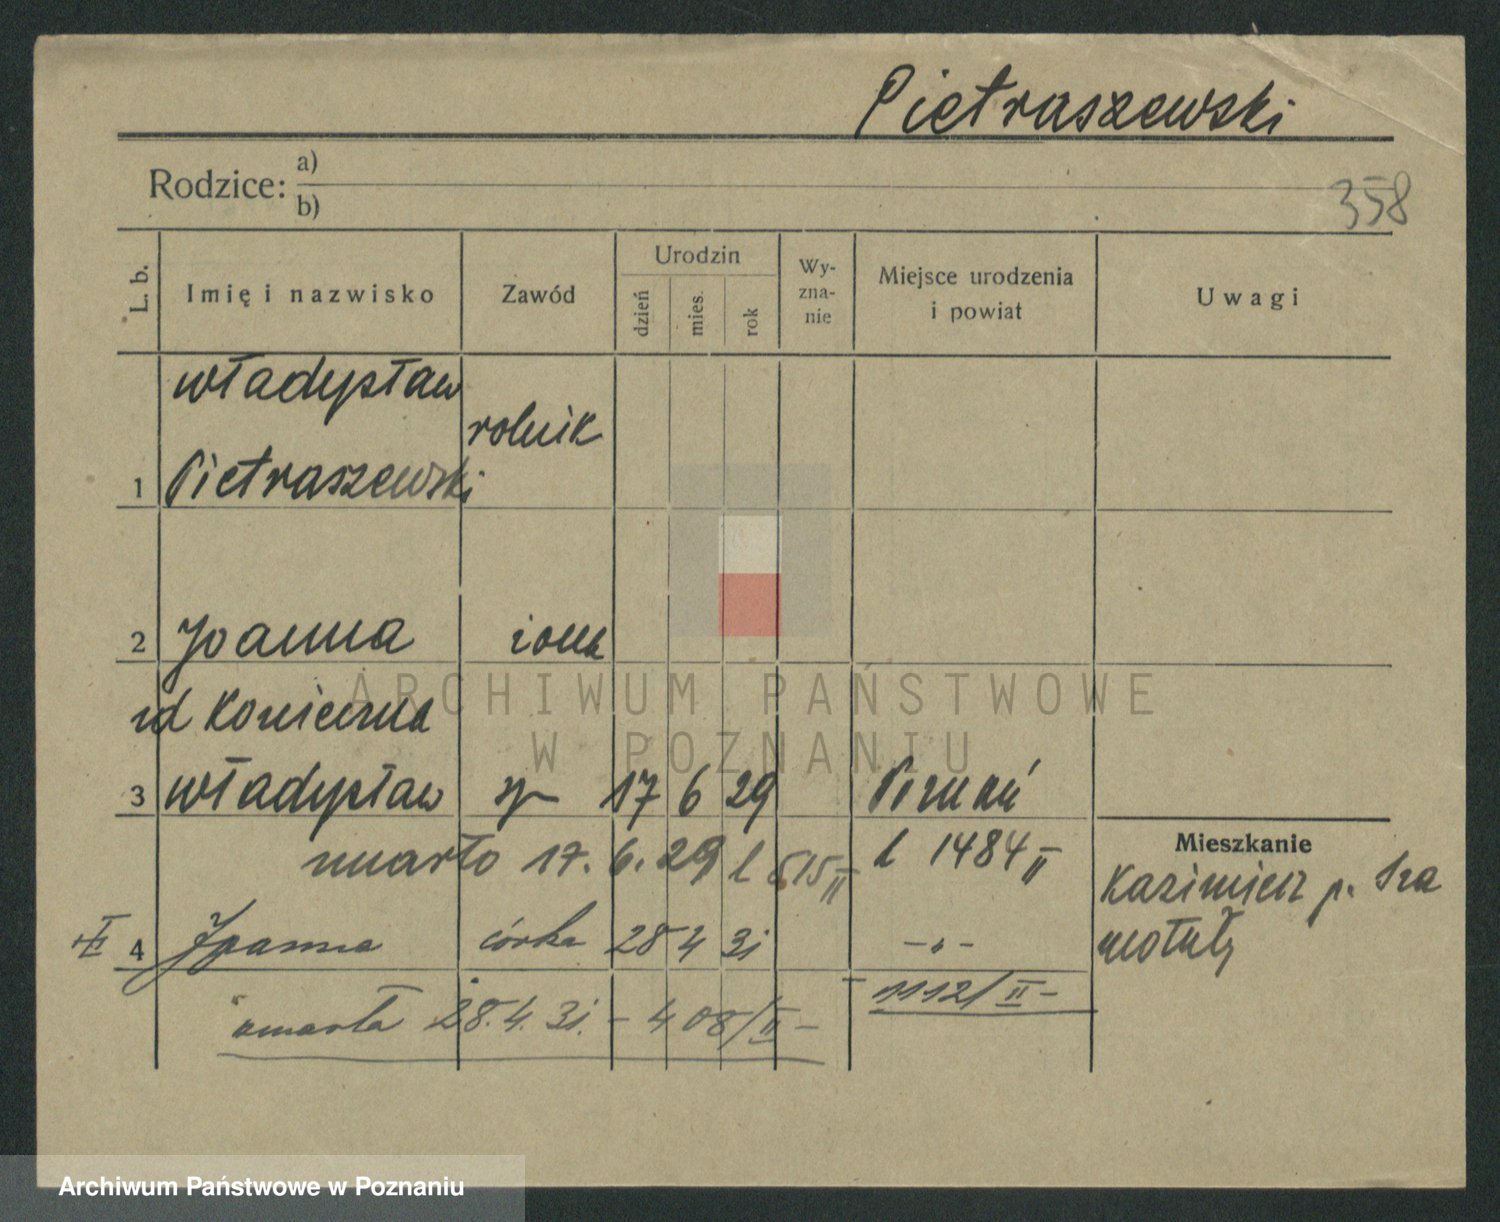 Pietraszewski
358
Rodzice: a)
b)
L. b. Imię i nazwisko Zawód Urodzin dzień mies. rok Wy-zna-nie Miejsce urodzenia i powiat Uwagi
władysław
rolnik
1 Pietraszewski
2 Joanna żona
zd Konieczna
3 władysław syn 17 6 29 Poznań
zmarło 17. 6. 29 l 515 II l 1484 II
Mieszkanie
Kazimierz p. Sza
motuły
4 Joanna córka 28 4 31 - " -
- 1112/II -
zmarła 28. 4. 31. - 408/II -
ARCHIWUM PAŃSTWOWE
W POZNANIU
Archiwum Państwowe w Poznaniu